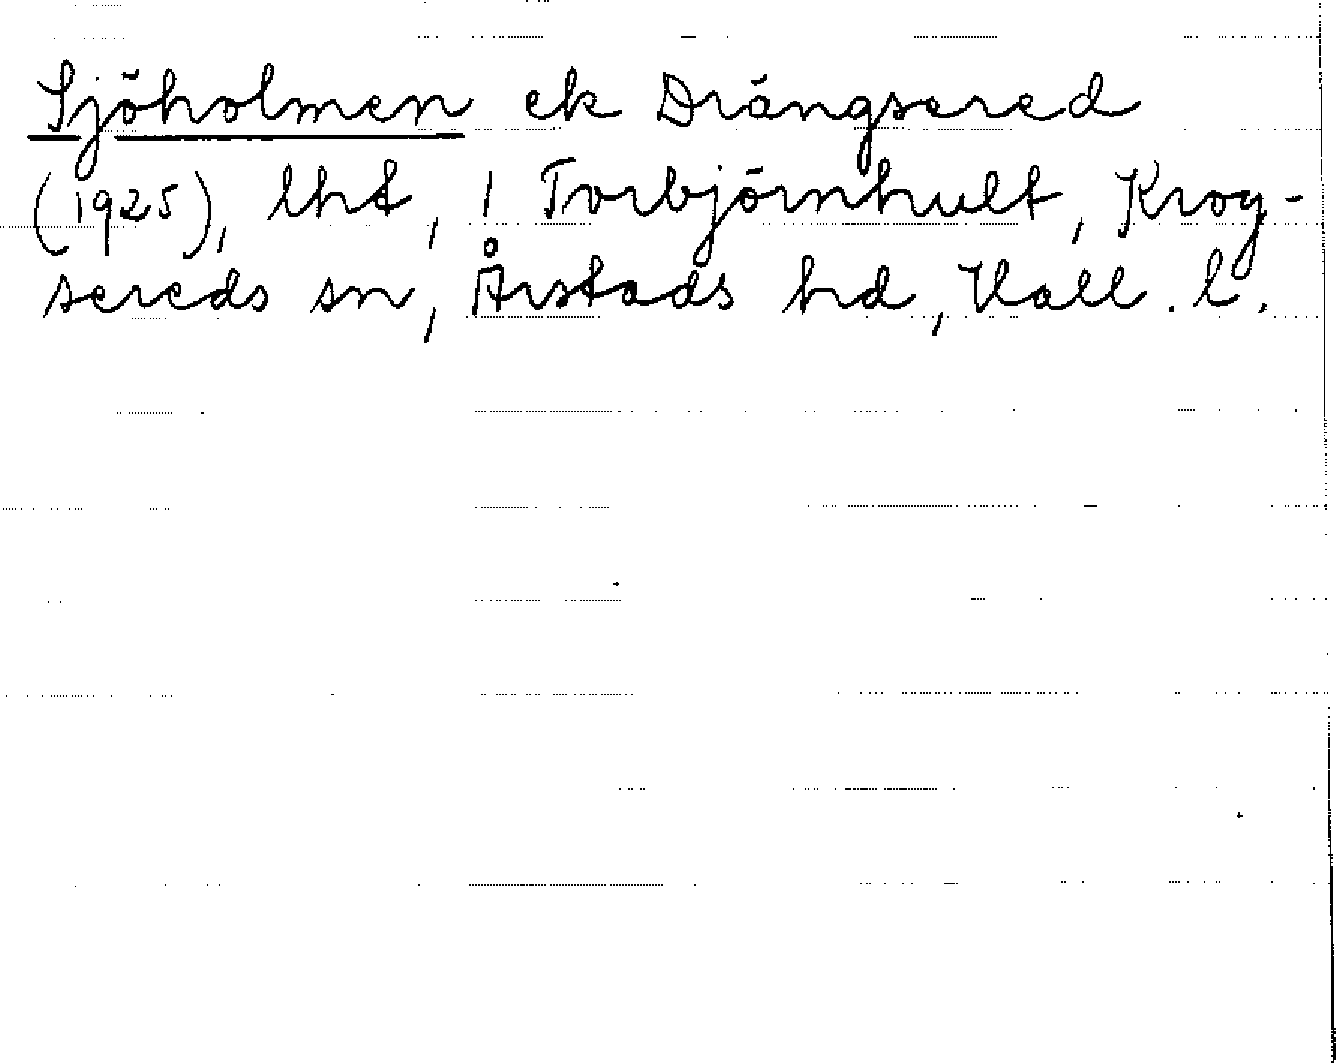 Sjöholmen ek Drängsered
(1925), lht, 1 Torbjörnhult, Krog-
sereds sn, Årstads hd, Hall. l.